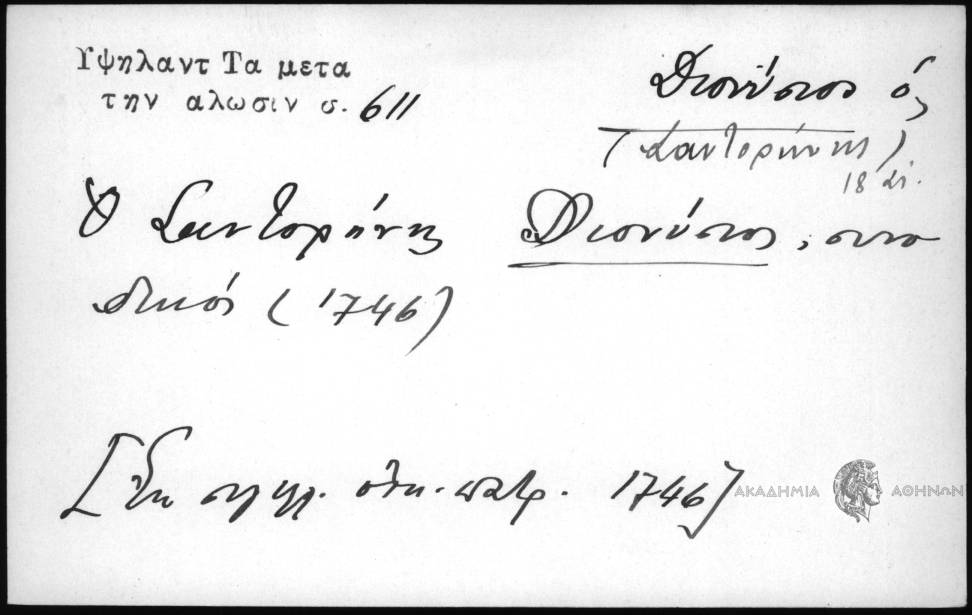 Υψηλαντ Τα μετα
την αλωσιν σ. 611
Διονύσιος ὁ
(Σαντορίνης)
18 αι.
Ὁ Σαντορήνης Διονύσιος, συνο
δικός (1746)
[Ἐκ οἰκ. πατρ. 1746]
ΑΚΑΔΗΜΙΑ ΑΘΗΝΩΝ